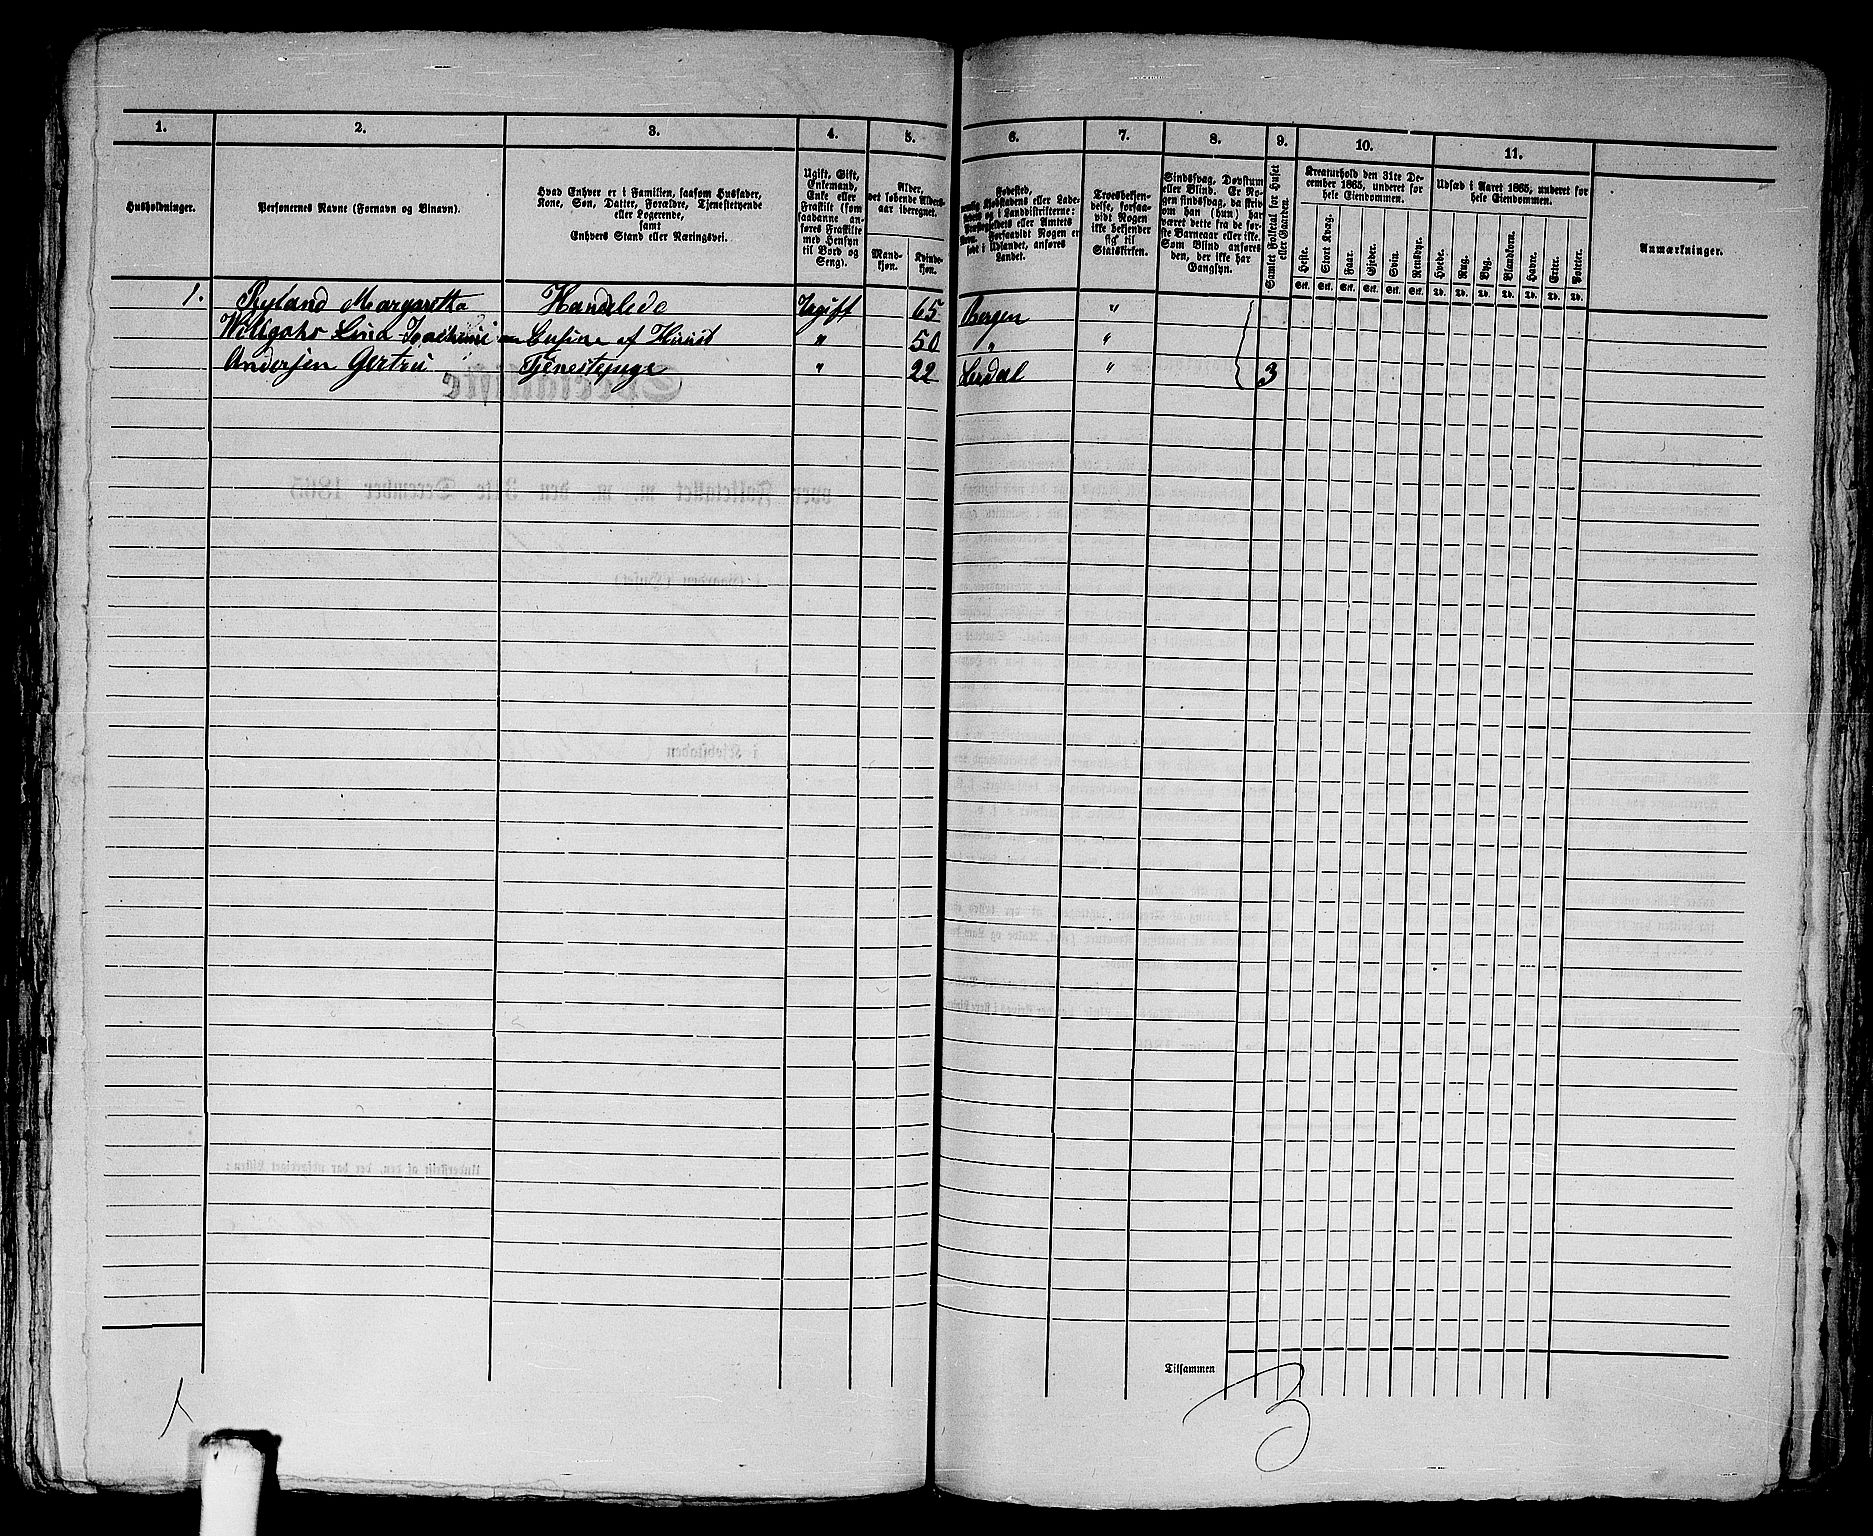 1. 2. 3. 4. 5. 6. 7. 8. 9. 10. 11.
Husholdninger.
Personernes Navne (Fornavn og Binavn).
Hvad Enhver er i Familien, saasom Husfader,
Kone, Søn, Datter, Forældre, Tjenestetyende
eller Logerende,
samt
Enhvers Stand eller Næringsvei.
Ugift, Gift,
Enkemand,
Enke eller
Fraskilt (som
saadanne an-
føres Fraskilte
med Hensyn
til Bord og
Seng).
Alder,
det løbende Alders-
aar iberegnet.
Mand-
kjøn.
Kvinde-
kjøn.
Fødested,
nemlig Kjøbstadens eller Lade-
stedets og i Landdistrikterne:
Præstegjeldets eller Amtets
Navn. Forsaavidt Nogen er
født i Udlandet, anføres
Landet.
Troesbekjen-
delse, forsaa-
vidt Nogen
ikke bekjender
sig til
Statskirken.
Sindssvag, Døvstum
eller Blind. Er No-
gen sindssvag, da skriv
om han (hun) har
været dette fra de før-
ste Barneaar eller ikke.
Som Blind anføres
den, der ikke har
Gangsyn.
Samlet Folketal for Huset
eller Gaarden.
Kreaturhold den 31te De-
cember 1865, underet for
hele Eiendommen.
Heste. Stort Kvæg. Faar. Gjeder. Svin. Rensdyr.
Stk. Stk. Stk. Stk. Stk. Stk.
Udsæd i Aaret 1865, underet for
hele Eiendommen.
Hvede. Rug. Byg. Blandkorn. Havre. Erter. Poteter.
Td. Td. Td. Td. Td. Td. Td.
Anmærkninger.
1. Ryland Margaretha Handlede Ugift 65 Bergen "
Willgohs Lina Cusine af Huset " 50 " "
Andersen Gertru Tjenestepige " 22 Lerdal " 3
Tilsammen
3